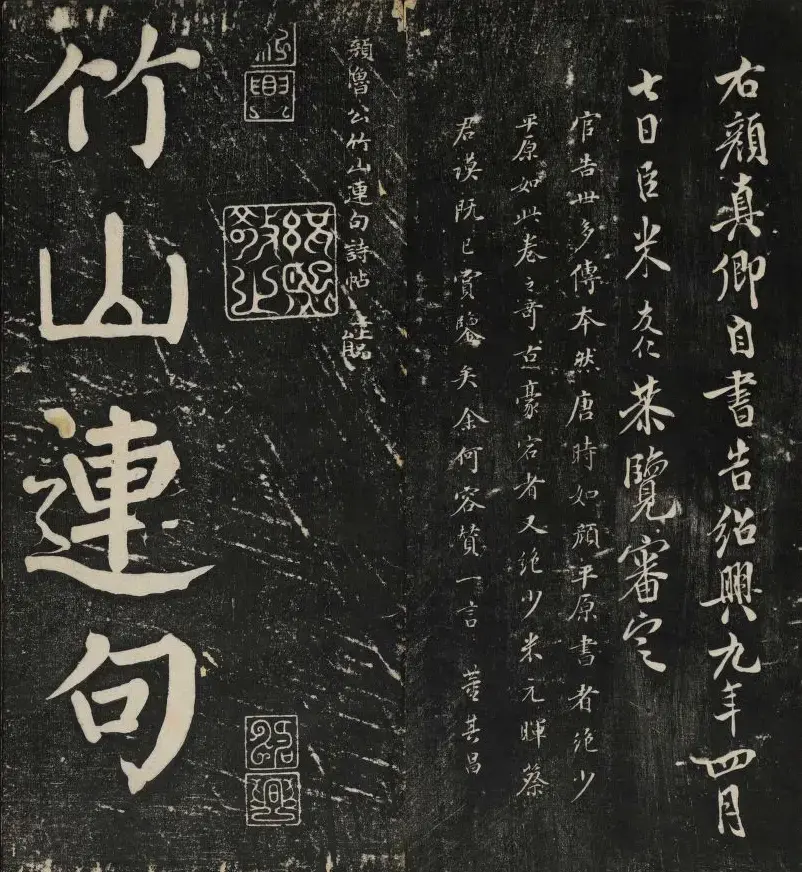 右顏真卿自書告紹興九年四月
七日臣米友仁恭覽審定
官告世多傳本然唐時如顏平原書者絕少
平原如此卷之奇古豪宕者又絕少米元暉蔡
君謨既已賞鑒矣余何容贊一言 董其昌
顏魯公竹山連句詩帖
紹興
紹興
竹山連句